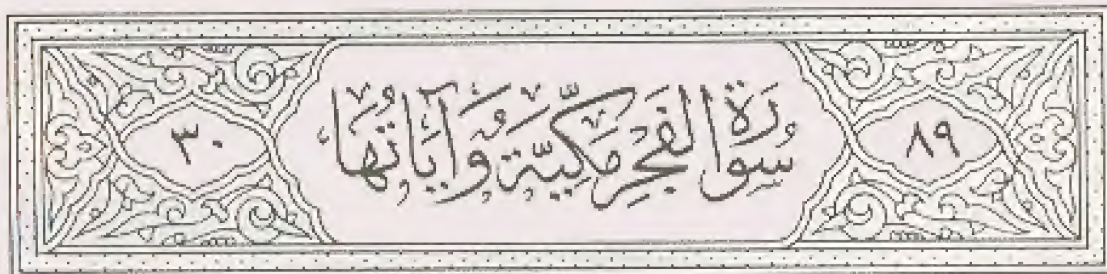 ٨٩
سُورَةُ الْفَجْرِ مَكِّيَّةٌ وَآيَاتُهَا
٣٠